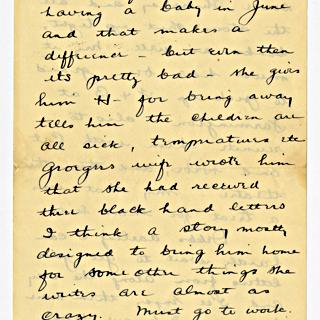 having a baby in June
and that makes a
difference - but even then
its pretty bad - she gives
him H- for being away
tells him the children are
all sick, tempratures etc
Georges wife wrote him
that she had received
three black hand letters
I think a story mostly
designed to bring him home
for some other things she
writes are almost as
crazy. Must go to work.